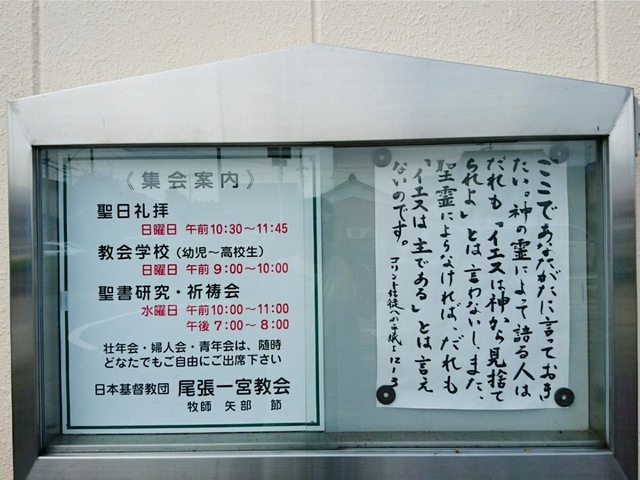 《集会案内》
聖日礼拝
日曜日 午前10:30～11:45
教会学校（幼児～高校生）
日曜日 午前 9:00～10:00
聖書研究・祈祷会
水曜日 午前10:00～11:00
午後 7:00～ 8:00
壮年会・婦人会・青年会は、随時
どなたでもご自由にご出席下さい
日本基督教団 尾張一宮教会
牧師 矢部 節
ここであなたがたに言っておき
たい。神の霊によって語る人は
だれも「イエスは神から見捨て
られよ」とは言わないし、また、
聖霊によらなければ、だれも
「イエスは主である」とは言え
ないのです。 コリント信徒への手紙Ⅰ12-3